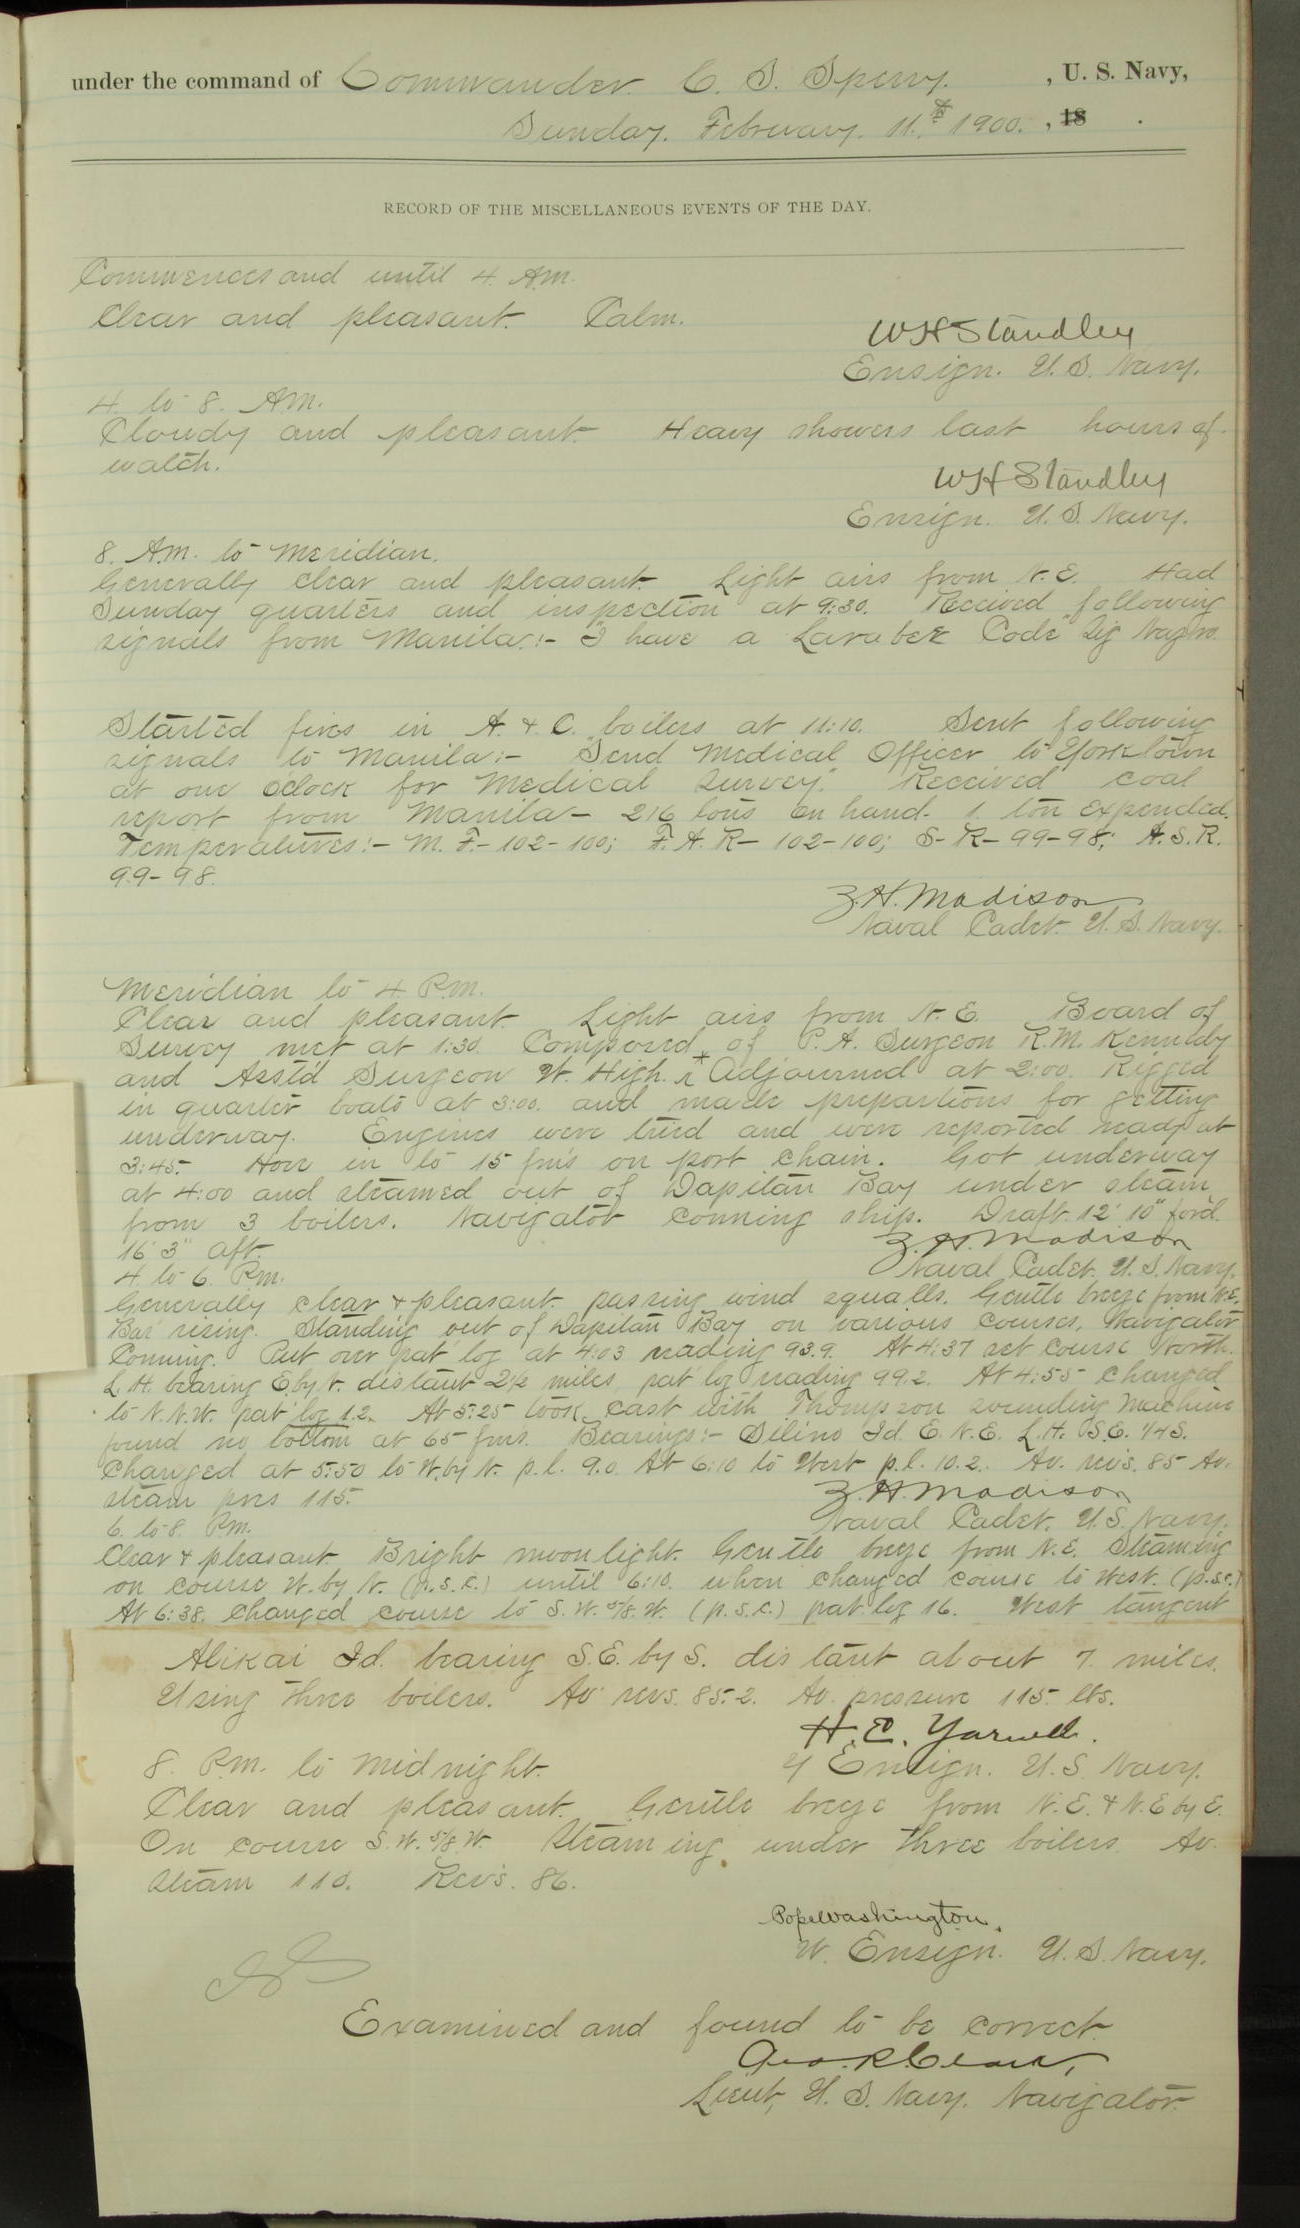 under the command of Commander C. S. Sperry. , U. S. Navy,
Sunday. February. 11.th 1900. , 18 .
RECORD OF THE MISCELLANEOUS EVENTS OF THE DAY.
Commences and until 4. A.M.
Clear and pleasant. Calm.
WH Standley
Ensign. U.S. Navy.
4. to 8. A.M.
Cloudy and pleasant. Heavy showers last hours of
watch.
WH Standley
Ensign. U.S. Navy.
8. A.M. to Meridian.
Generally clear and pleasant. Light airs from N.E. Had
Sunday quarters and inspection at 9:30. Received following
signals from Manila:- "I have a Code Sig
Started fires in A. & C. boilers at 11:10. Sent following
signals to Manila:- "Send Medical Officer to Yorktown
at one o'clock for Medical Survey." Received coal
report from Manila- 216 tons on hand. 1. ton expended.
Temperatures:- M. F.- 102-100; F. A. R- 102-100; S- R- 99-98; A. S. R.
99-98.
Z.H. Madison
Naval Cadet. U.S. Navy.
Meridian to 4 P.M.
Clear and pleasant. Light airs from N.E. Board of
Survey met at 1:30. Composed of P.A. Surgeon R.M. Kennedy
and Asst'd Surgeon W. High. & Adjourned at 2:00. Rigged
in quarter boats at 3:00. and made prepartions for getting
underway. Engines were tried and were reported ready at
3:45. Hove in to 15 fm's on port chain. Got underway
at 4:00 and steamed out of Dapitan Bay under steam
from 3 boilers. Navigator conning ship. Draft. 12' 10" for'd.
16' 3" aft.
Z. H. Madison
4. to 6. P.m.
Naval Cadet. U.S. Navy.
Generally clear & pleasant. passing wind squalls. Gentle breeze from N.E.
Bar rising. Standing out of Dapitan Bay on various courses, Navigator
Conning. Put over pat log at 4:03 reading 93.9. At 4:37 set course North.
L.H. bearing E. by N. distant 2½ miles, pat log reading 99.2. At 4:55 changed
to N.N.W. pat log 1.2. At 5:25 took cast with Thompson sounding Machine
found no bottom at 65 fms. Bearings:- Silino Id. E.N.E. L.H. S.E. 1/4 S.
Changed at 5:50 to W. by N. p.l. 9.0. At 6:10 to West p.l. 10.2. Av. revs. 85 Av.
steam pres 115.
Z.H. Madison
Naval Cadet. U.S. Navy.
6. to 8. P.m.
Clear & pleasant. Bright moonlight. Gentle breeze from N.E. Steaming
on course W. by N. (p.s.c.) until 6:10. when changed course to West. (p.s.c.)
At 6:38. changed course to S.W. 5/8. W. (p.s.c.) pat. log 16. West tangent
Alikai Id. bearing S.E. by S. distant about 7. miles.
Using three boilers. Av. revs. 85.2. Av. pressure 115. lbs.
H. E. Yarnell.
8. P.m. to Midnight.
Ensign. U.S. Navy.
Clear and pleasant. Gentle breeze from N.E. & N.E by E.
On course S.W. 5/8. W. Steaming under three boilers. Av.
steam 110. Revs. 86.
Pope Washington.
Ensign. U.S. Navy.
Examined and found to be correct.
Geo. R. Clark,
Lieut, U.S. Navy. Navigator.